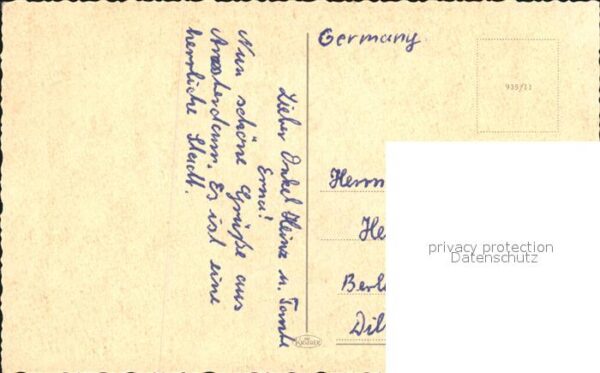 Germany
935/11
Lieber Onkel Heinz u. Tante
Erna!
Nun schöne Grüße aus
Amsterdam. Es ist eine
herrliche Stadt.
Herrn
He
Berl
Dil
privacy protection
Datenschutz